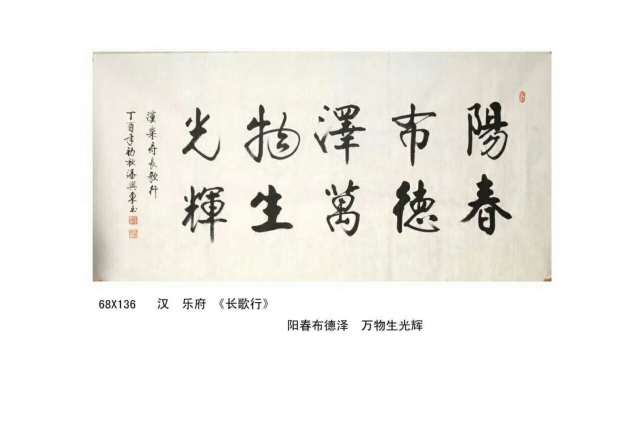 陽春
布德
澤萬
物生
光輝
漢樂府長歌行
丁酉年初秋潘興東书
68X136 汉 乐府 《长歌行》
阳春布德泽 万物生光辉